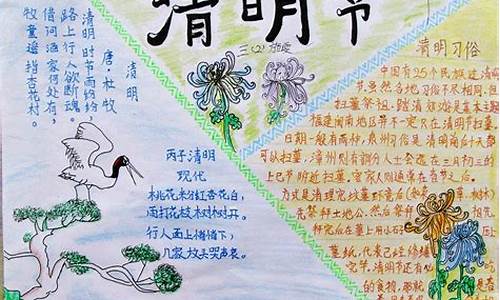 清明节
三(2)
清明
唐·杜牧
清明时节雨纷纷，
路上行人欲断魂。
借问酒家何处有，
牧童遥指杏花村。
丙子清明
现代
桃花来分红杏花白，
雨打花枝树树开。
行人面上情情下，
几家坟头哭声哀。
清明习俗
中国有25个民族过清明
节，虽然各地习俗不尽相同，但
扫墓祭祖、踏青郊游是基本主题
福建闽南地区并不一定只在清明节扫墓
日期一般有两种，泉州习俗是清明前后十天都
可以扫墓，漳州则有部分人士会选在三月初三的
上巳节附近扫墓，客家人则通常在春节之后。
方式是清理完坟墓环境后
先祭拜土地公，然后祭拜
拜完后在墓上用小石
墓纸，代表已经修缮
完毕。清明节还有
的食物，那就